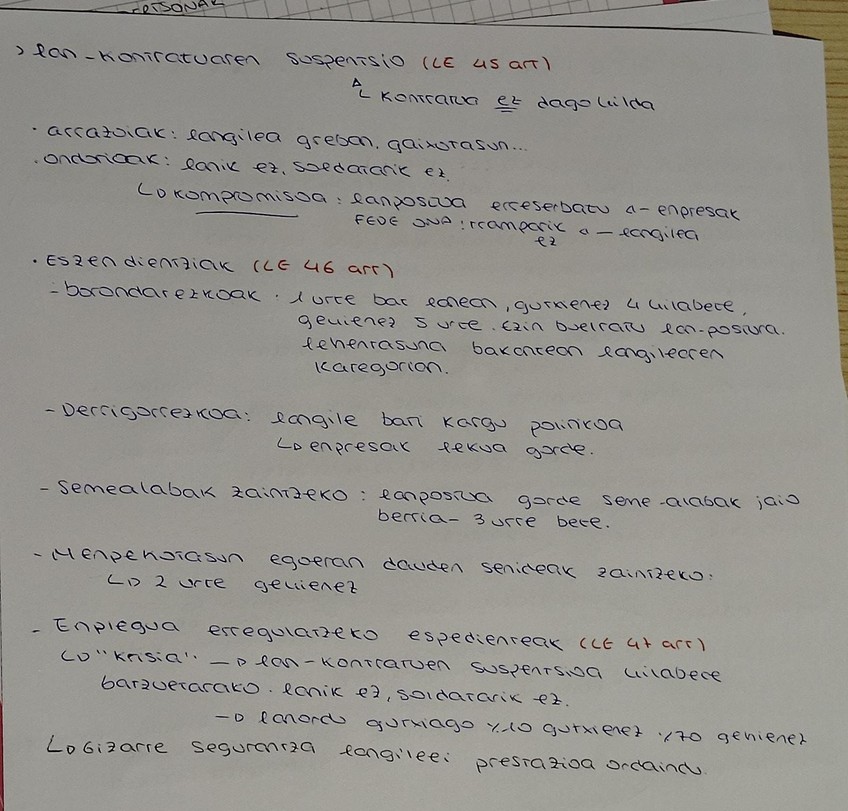 PERSONAK
> lan-kontratuaren suspentsio (LE 45 art)
↳ kontratua ez dago hilda
· arrazoiak: langilea greban, gaixotasun...
· ondorioak: lanik ez, soldatarik ez.
↳ kompromisoa: lanpostua erreserbatu → enpresak
FEDE ONA: trampatik ez → langilea
· Eszendientziak (LE 46 art)
- borondatezkoak · 1 urte bat lanean, gutxienez 4 hilabete,
gehienez 5 urte. Ezin bueltatu lan-postura.
lehentasuna bakantean langilearen
kategorian.
- Derrigorrezkoa: langile bati kargu politikoa
↳ enpresak lekua gorde.
- Semealabak zaintzeko: lanpostua gorde seme-alabak jaio
berria- 3 urte bete.
- Menpekotasun egoeran dauden senideak zaintzeko:
↳ 2 urte gehienez
- Enplegua erregulatzeko espedienteak (LE 47 art)
↳ "Krisia" → lan-kontratuen suspentsioa hilabete
batzuetarako. lanik ez, soldatarik ez.
→ lanordu gutxiago %10 gutxienez %70 gehienez
↳ Gizarte Segurantza langileei prestazioa ordaindu.